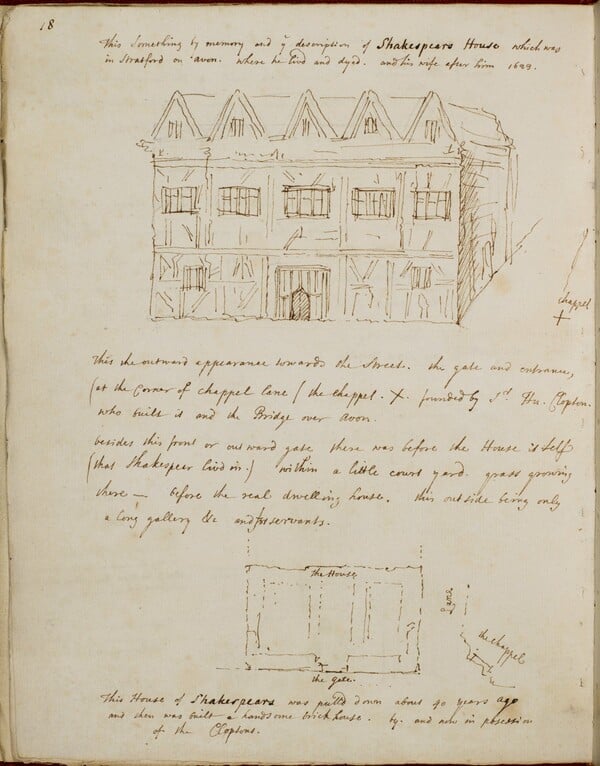 18
This Something by memory and ye description of Shakespears House which was
in Stratford on avon. where he livd and dyed. and his wife after him 1623.
chappel
X
This the outward appearance towards the Street. the gate and entrance,
(at the Corner of chappel lane / the chappel. X. founded by Sr. Hu. Clopton.
who built it and the Bridge over Avon.
besides this front or outward gate there was before the House it Self
(that Shakespear livd in.) within a little court yard. grass growing
there — before the real dwelling house. this outside being only
a long gallery &c and for servants.
the House
Lane
the chappel
the gate.
This House of Shakespears was pulld down about 40 years ago
and then was built a handsome brick house. by. and now in posession
of the Cloptons.